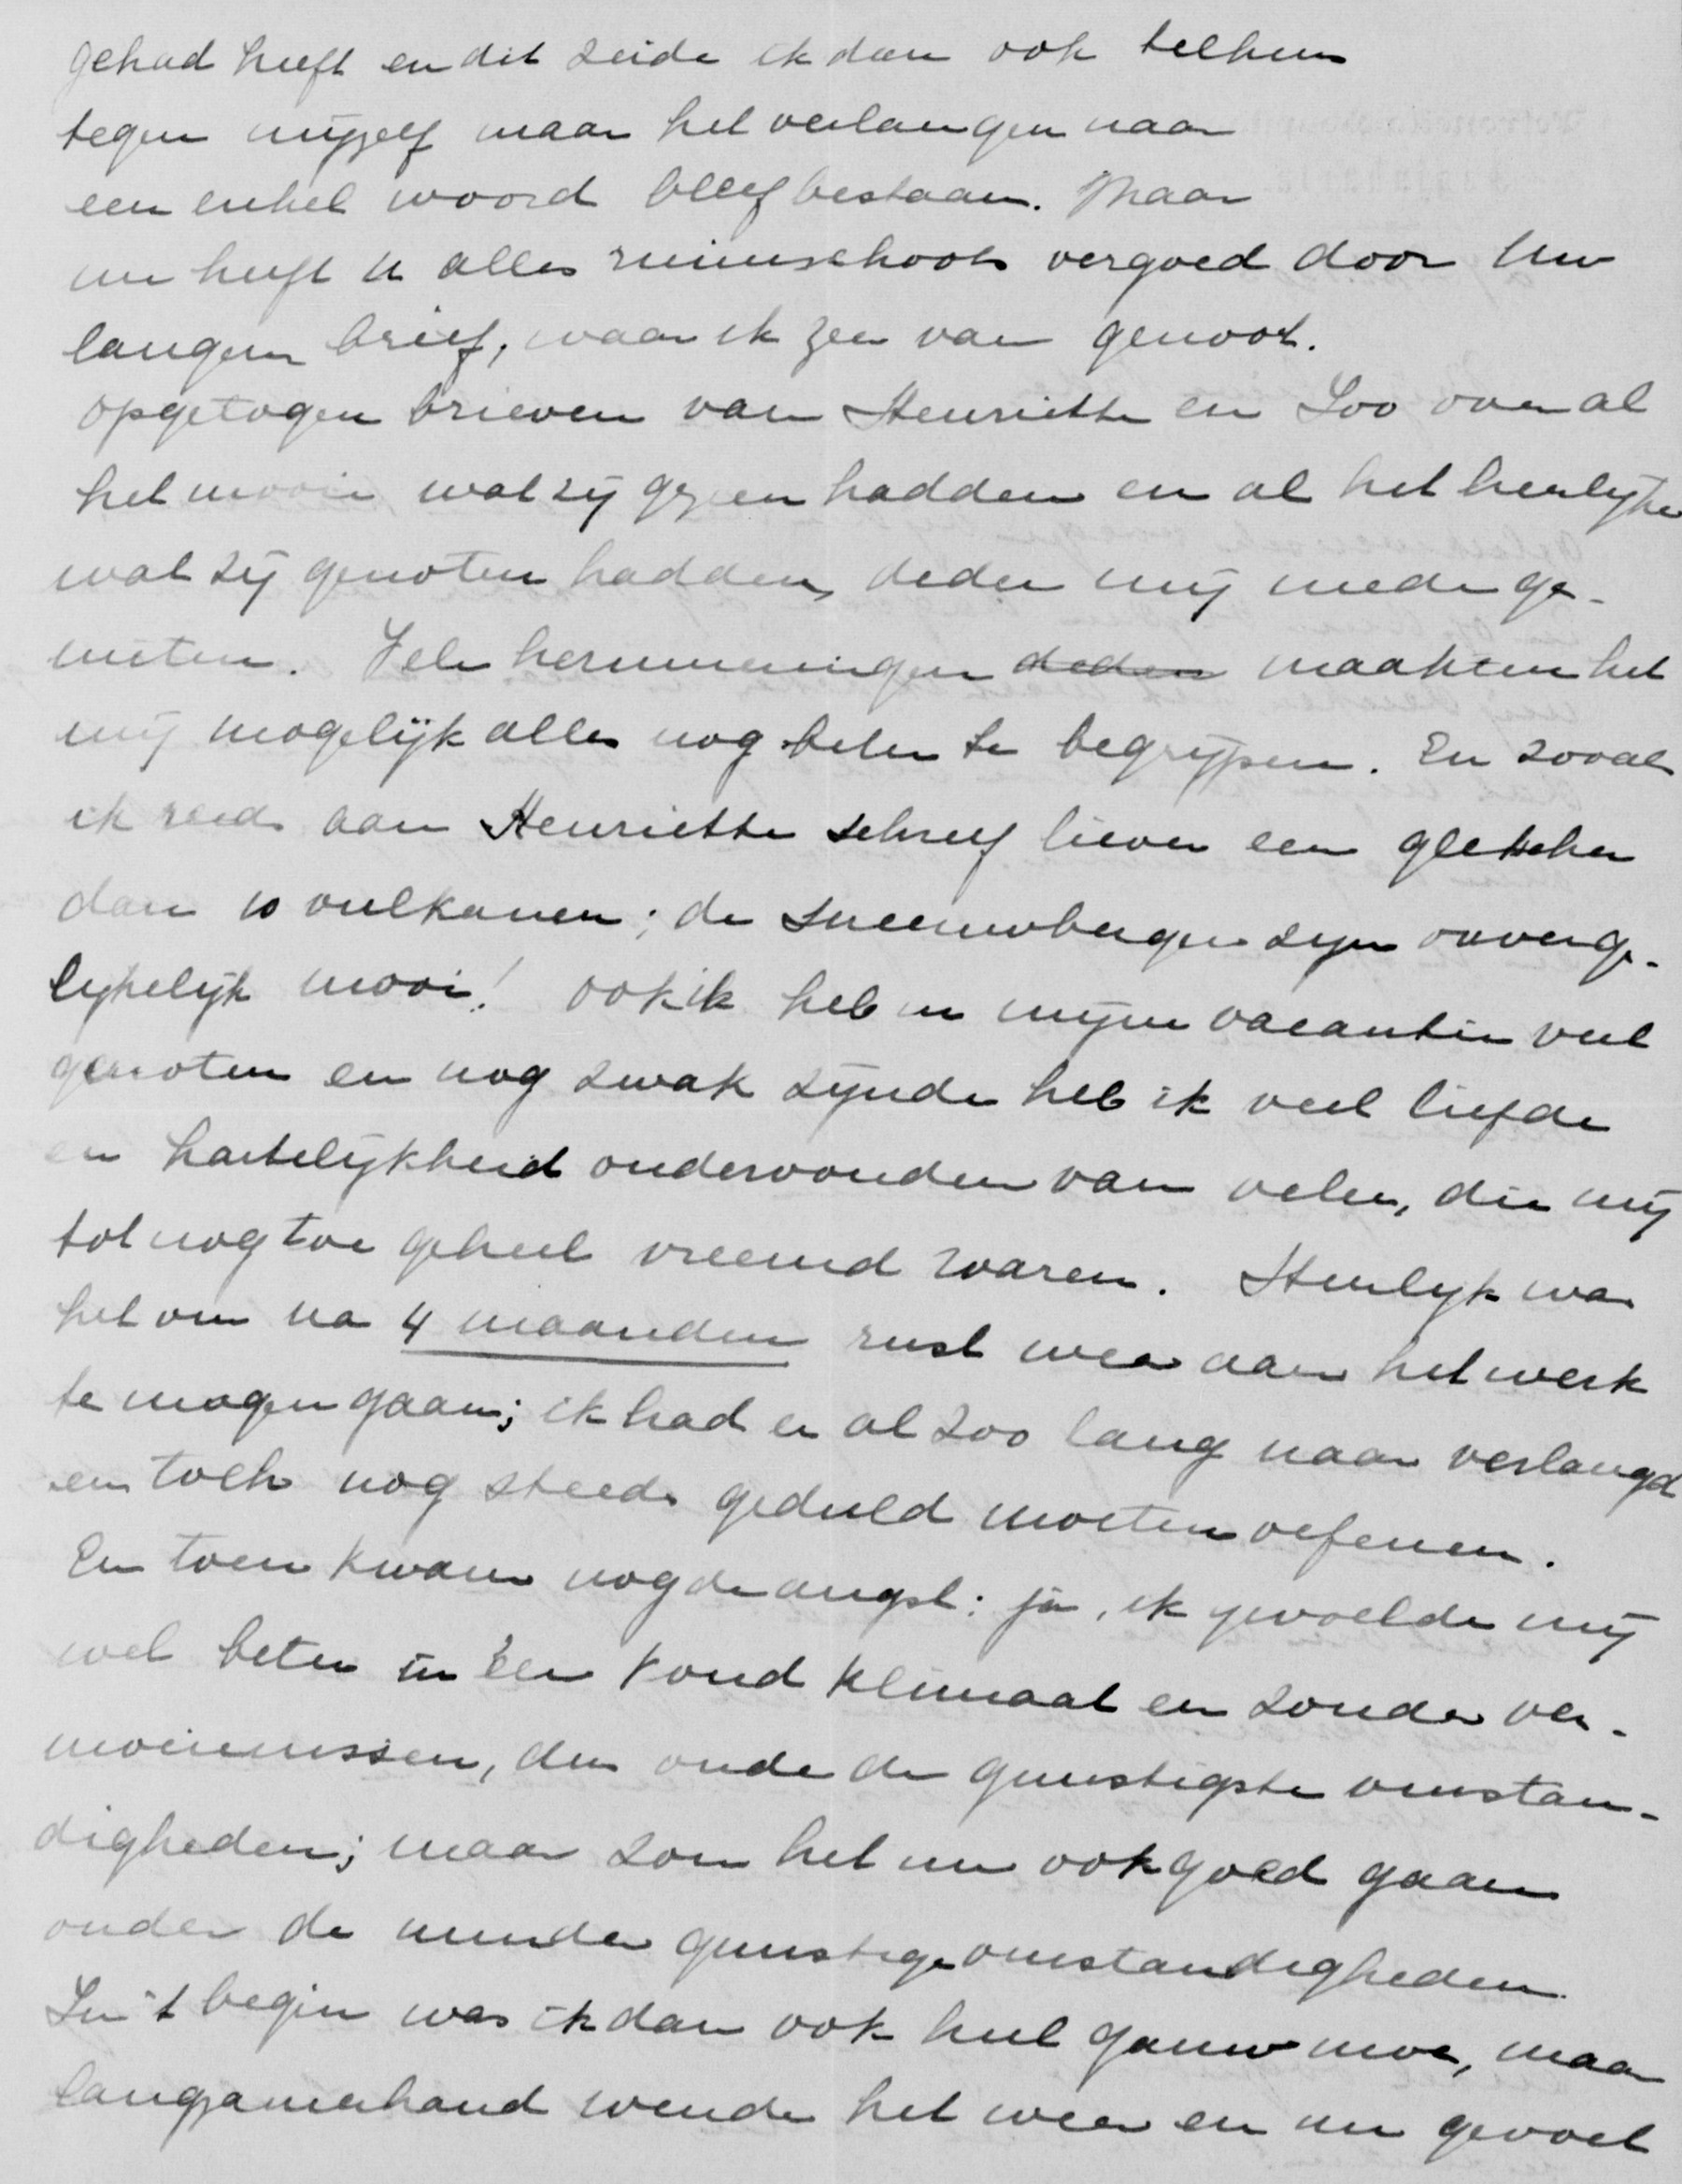 gehad heeft en dit zeide ik dan ook telkens
tegen mijzelf maar het verlangen naar
een enkel woord bleef bestaan. Maar
nu heeft U alles ruimschoots vergoed door Uw
langen brief, waar ik zeer van genoot.
Opgetogen brieven van Henriette en Loo over al
het mooie wat zij gezien hadden en al het heerlijke
wat zij genoten hadden, deden mij mede ge-
nieten. Vele herinneringen deden maakten het
mij mogelijk alles nog beter te begrijpen. En zooals
ik reeds aan Henriette schreef liever een gletscher
dan 10 vulkanen; de sneeuwbergen zijn onverge-
lijkelijk mooi! Ook ik heb in mijne vacantie veel
genoten en nog zwak zijnde heb ik veel liefde
en hartelijkheid ondervonden van velen, die mij
tot nog toe geheel vreemd waren. Heerlijk was
het om na 4 maanden rust weer aan het werk
te mogen gaan; ik had er al zoo lang naar verlangd
en toch nog steeds geduld moeten oefenen.
En toen kwam nog de angst: ja, ik gevoelde mij
wel beter in een koud klimaat en zonder ver-
moeienissen, dus onder de gunstigste omstan-
digheden; maar zou het nu ook goed gaan
onder de minder gunstige omstandigheden.
In 't begin was ik dan ook heel gauw moe, maar
langzamerhand wende het weer en nu gevoel